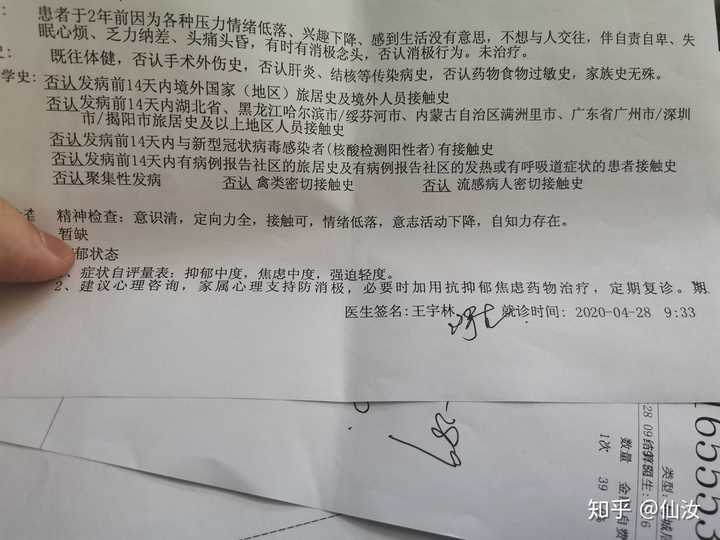 患者于2年前因为各种压力情绪低落、兴趣下降、感到生活没有意思，不想与人交往，伴自责自卑、失
眠心烦、乏力纳差、头痛头昏，有时有消极念头，否认消极行为。未治疗。
史： 既往体健，否认手术外伤史，否认肝炎、结核等传染病史，否认药物食物过敏史，家族史无殊。
学史：否认发病前14天内境外国家（地区）旅居史及境外人员接触史
否认发病前14天内湖北省、黑龙江哈尔滨市/绥芬河市、内蒙古自治区满洲里市、广东省广州市/深圳
市/揭阳市旅居史及以上地区人员接触史
否认发病前14天内与新型冠状病毒感染者(核酸检测阳性者)有接触史
否认发病前14天内有病例报告社区的旅居史及有病例报告社区的发热或有呼吸道症状的患者接触史
否认聚集性发病 否认 禽类密切接触史 否认 流感病人密切接触史
精神检查：意识清，定向力全，接触可，情绪低落，意志活动下降，自知力存在。
暂缺
郁状态
、症状自评量表：抑郁中度，焦虑中度，强迫轻度。
2、建议心理咨询，家属心理支持防消极，必要时加用抗抑郁焦虑药物治疗，定期复诊。
医生签名：王宇林 就诊时间：2020-04-28 9:33
65553
类型：
28 09
数量
1次
39
知乎 @仙汝